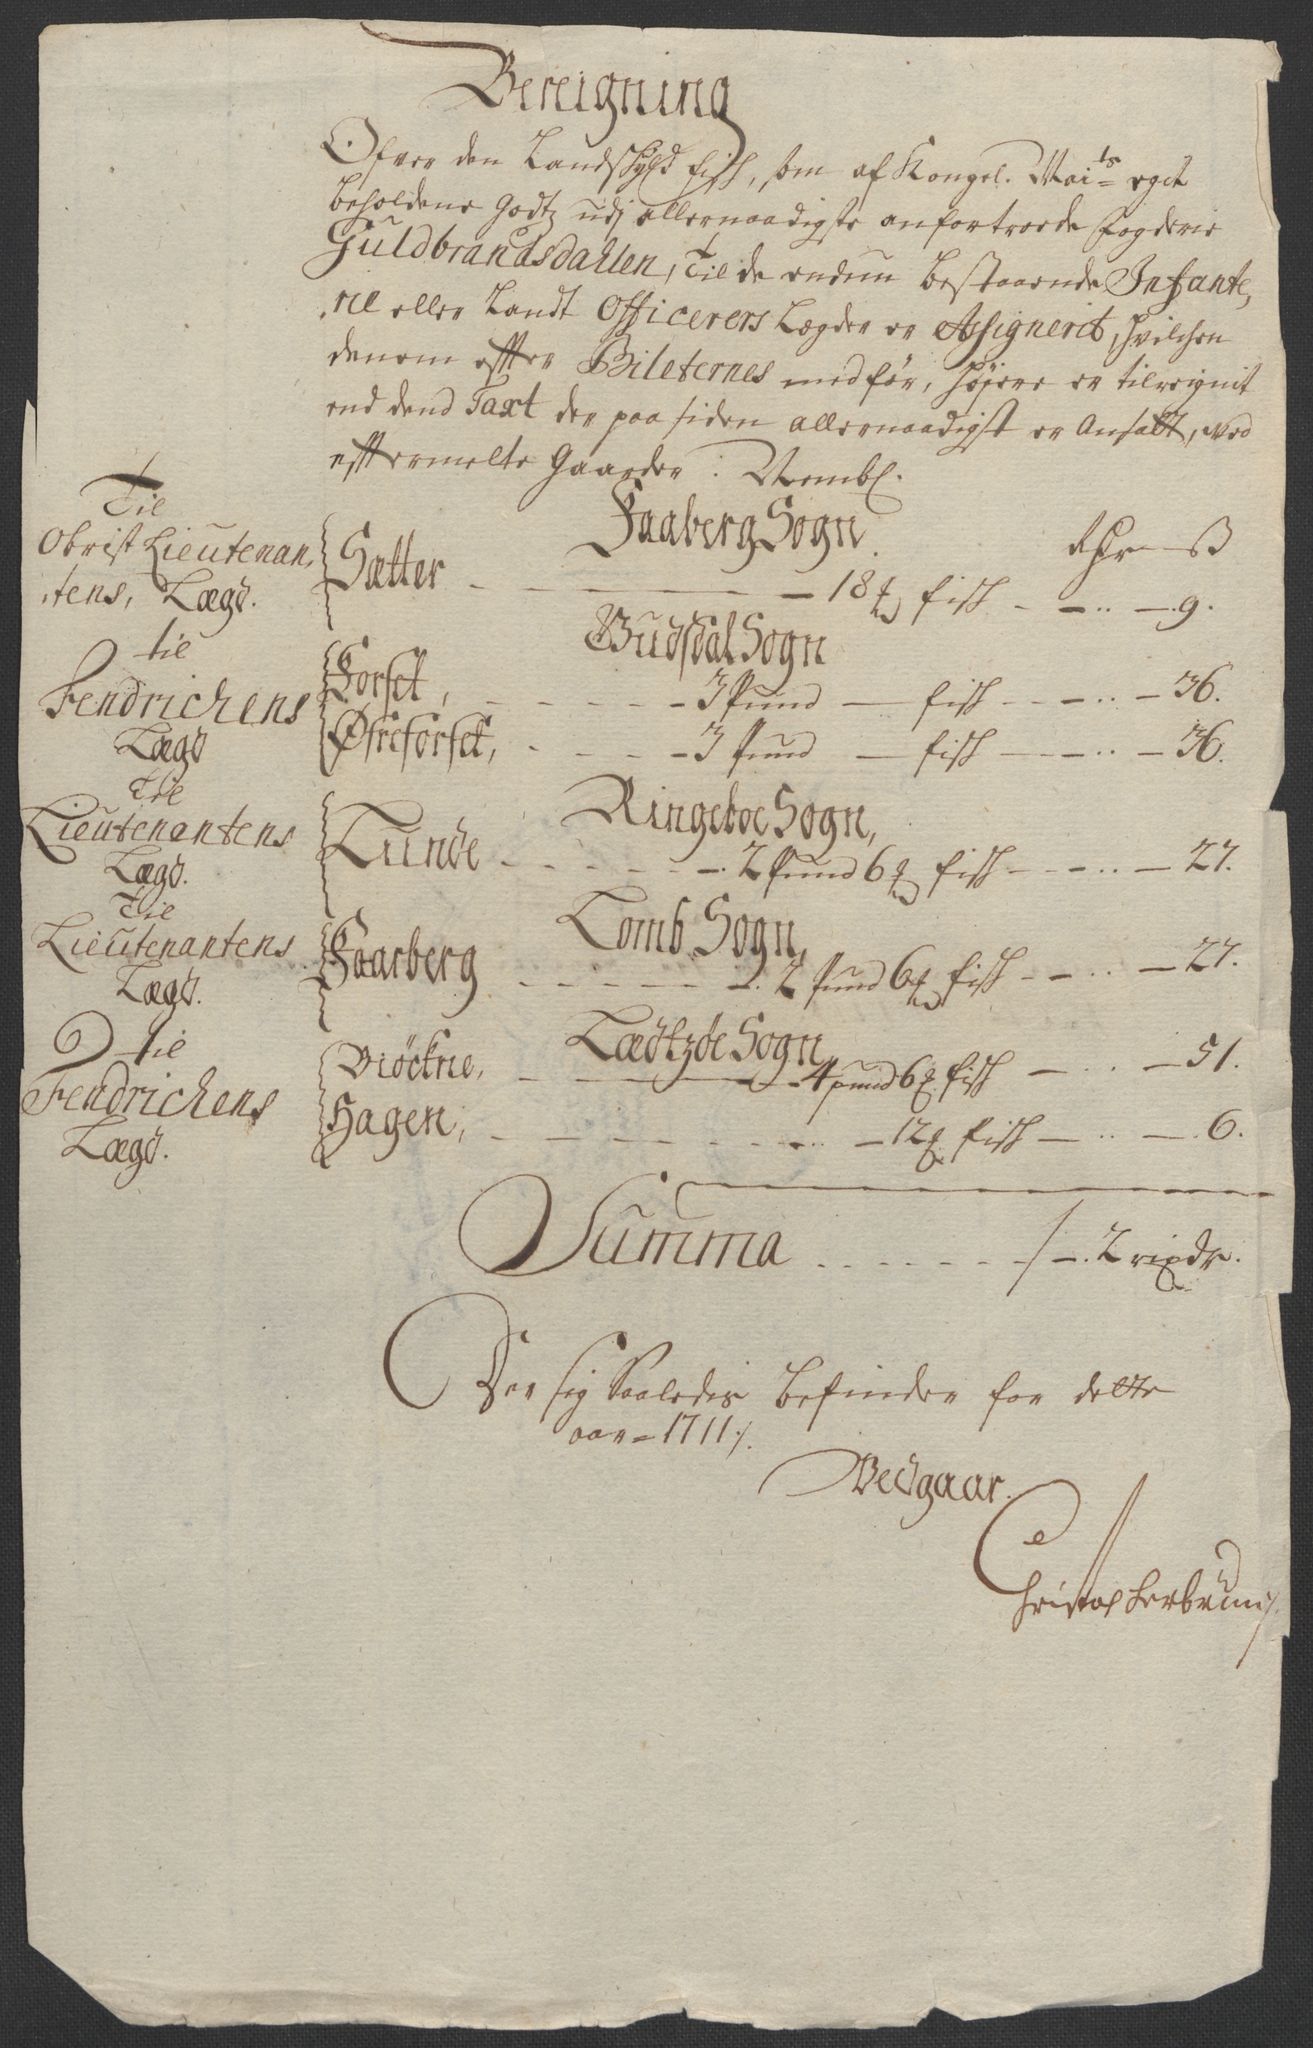 Bereigning
Ofver den Landskyld fisk, som af Kongel. Mai^ts eget
beholdene Godtz udj allernaadigste anfortroede fogderie
Guldbrandsdahlen, Til de endnu bestaaende Infante,
,rie eller Landt Officerers Lægder er Assignerit, hvilchen
denem effter Bileternes medfør, høyere er tilreignit
end dend Taxt der paa siden allernaadigst er Ansatt, ved
efftermelte Gaarder: Nembl.
Faaberg Sogn.
Rdr ß
Til
Obrist Lieutenan,
,tens, Lægd.
Sætter 18 fisk 9.
Budsdal Sogn
Til
Fendrichens
Lægd
Forset, 3 pund fisk 36.
Øfreforset, 3 pund fisk 36.
Ringeboe Sogn,
Til
Lieutenantens
Lægd.
Lunde 2 pund 6 fisk 27.
Lomb Sogn,
Til
Lieutenantens
Lægd.
Gaarberg 2 pund 6 fisk 27.
Lædtzøe Sogn
Til
Fendrichens
Lægd.
Biøckne, 4 pund 6 fisk 51.
Hagen, 12 fisk 6.
Summa 2 rixdr.
Der sig Saaledis befinder for dette
aar 1711.
Vedgaar.
Christof Lerbrun